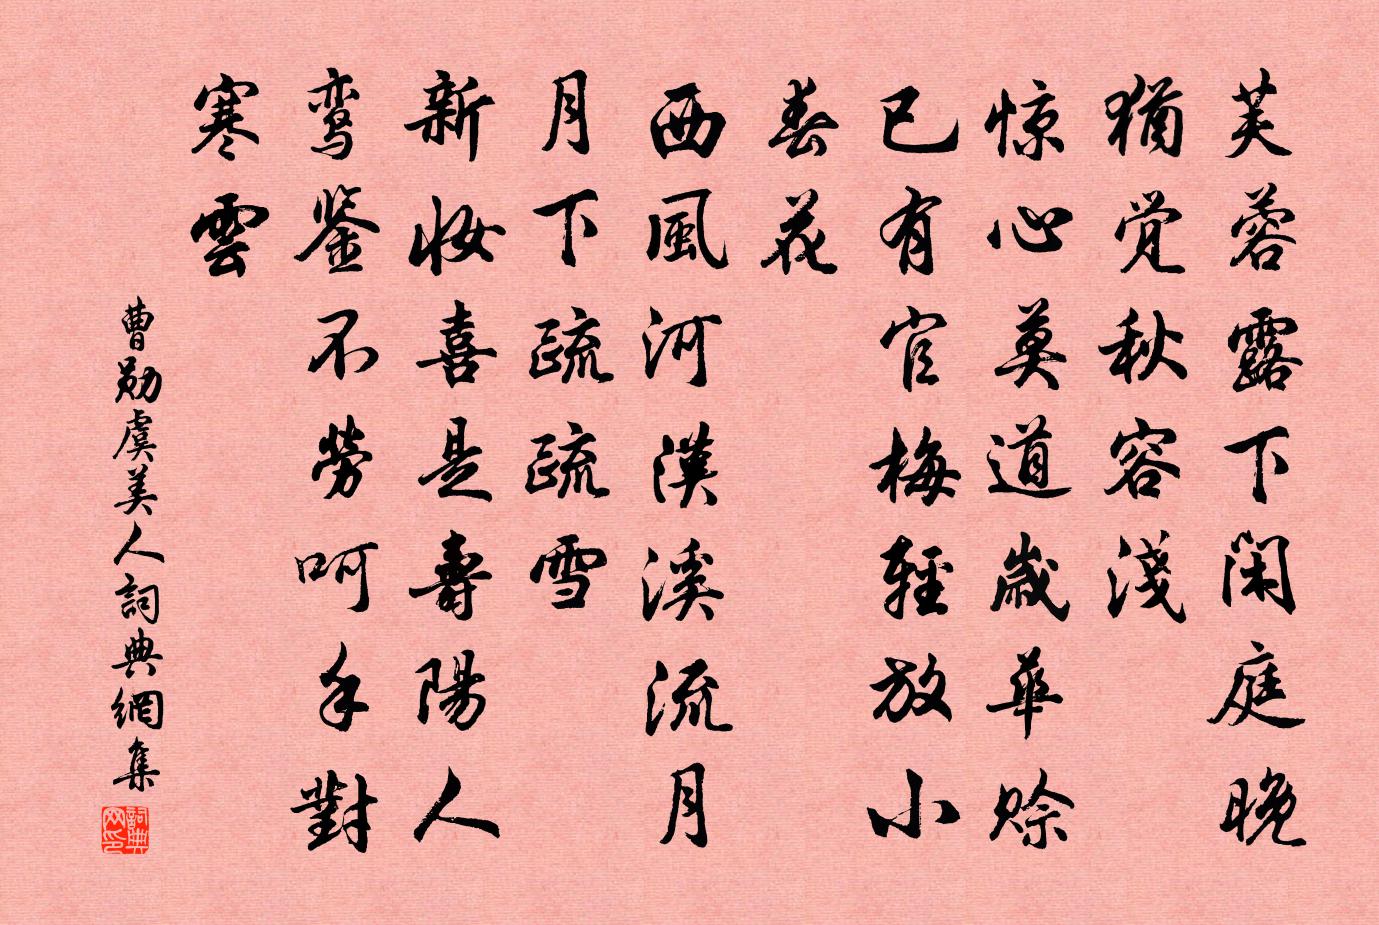 芙蓉露下闲庭晚
猶觉秋容淺
惊心莫道歲华赊
已有官梅輕放小
春花
西風河漢溪流月
月下疏疏雪
新妝喜是壽陽人
鸾鉴不劳呵手對
寒雲
曹勋虞美人詞典網集
詞典网印